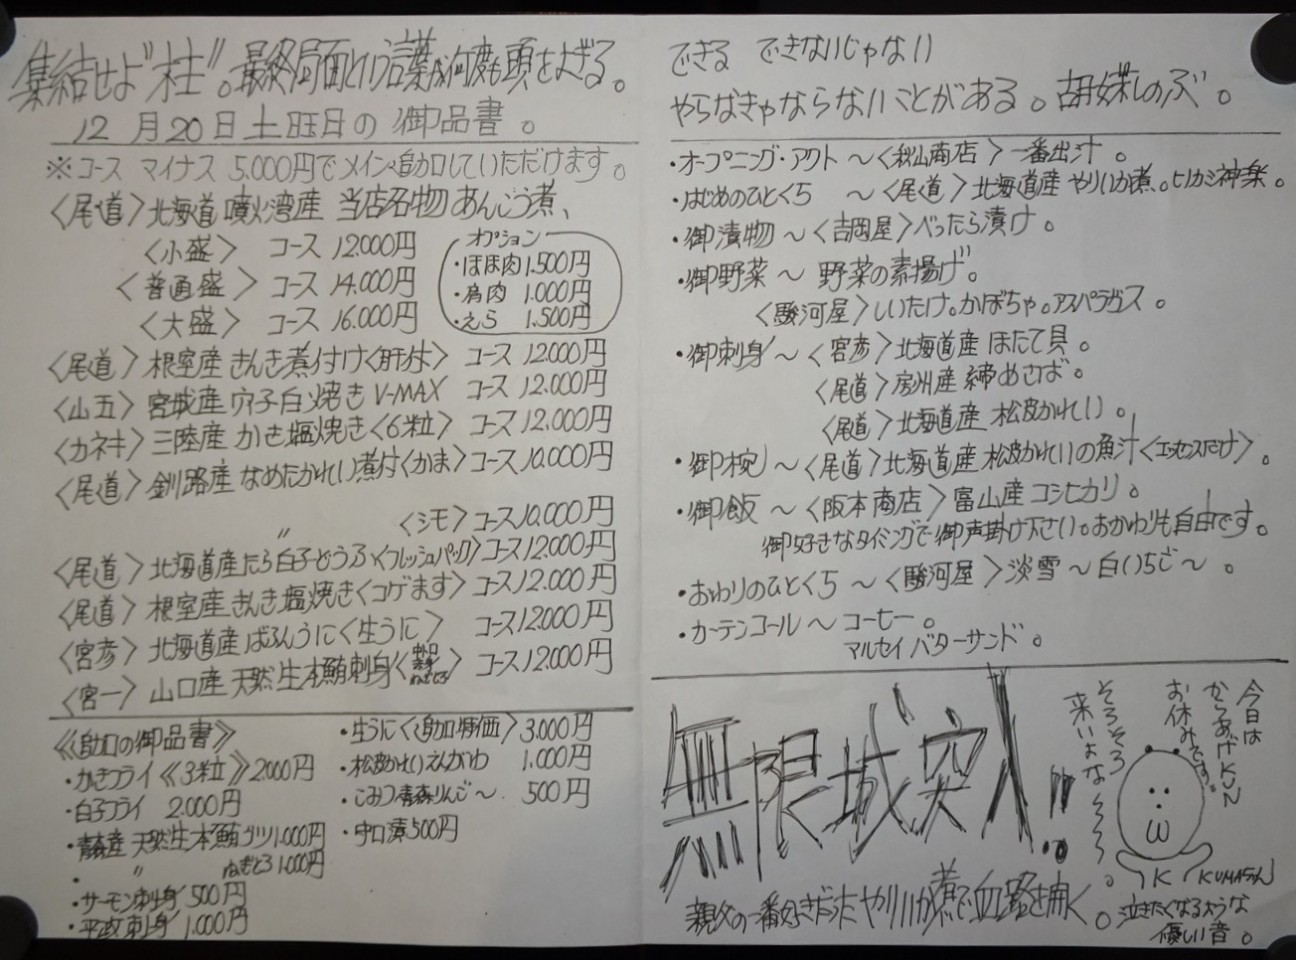 集結せよ"柱"。最終局面という言葉が何度も頭をよぎる。
12月20日土曜日の御品書。
※コース マイナス 5.000円でメインを追加していただけます。
〈尾道〉北海道 噴火湾産 当店名物 あんこう煮、
〈小盛〉 コース 12.000円
〈普通盛〉 コース 14.000円
〈大盛〉 コース 16.000円
オプション
・ほほ肉 1.500円
・肩肉 1.000円
・えら 1.500円
〈尾道〉根室産 きんき煮付け〈肝付〉 コース 12000円
〈山五〉宮城産 穴子白焼き V-MAX コース 12.000円
〈カネキ〉三陸産 かき塩焼き〈6粒〉 コース 12.000円
〈尾道〉釧路産 なめたかれい煮付〈かま〉コース 10.000円
〃 〈シモ〉コース 10.000円
〈尾道〉北海道産たら白子どうふ〈フレッシュパック〉コース 12.000円
〈尾道〉根室産きんき塩焼き〈コゲます〉コース 12.000円
〈宮彦〉北海道産ばふんうに〈生うに〉 コース 12000円
〈宮一〉山口産 天然生本鮪刺身 コース 12.000円
《追加の御品書》
・かきフライ《3粒》2000円
・白子フライ 2.000円
・青森産 天然生本鮪ブツ 1.000円
・〃 ねぎとろ 1.000円
・サーモン刺身 500円
・平政刺身 1.000円
・生うに〈追加特価〉3.000円
・松皮かれいえんがわ 1.000円
・こみつ 青森りんご〜 500円
・中口漬 500円
できる できないじゃない
やらなきゃならないことがある。胡蝶しのぶ。
・オープニング・アクト 〜〈秋山商店〉一番出汁。
・はじめのひとくち 〜〈尾道〉北海道産 やりいか煮、。ヒノカミ神楽。
・御漬物 〜〈吉岡屋〉べったら漬け。
・御野菜 〜 野菜の素揚げ。
〈駿河屋〉しいたけ。かぼちゃ。アスパラガス。
・御刺身 〜〈宮彦〉北海道産 ほたて貝。
〈尾道〉房州産 締めさば。
〈尾道〉北海道産 松皮かれい。
・御椀 〜〈尾道〉北海道産 松皮かれいの魚汁〈エッセンスだけ〉。
・御飯 〜〈阪本商店〉富山産 コシヒカリ。
御好きなタイミングで御声掛け下さい。おかわりも自由です。
・おわりのひとくち 〜〈駿河屋〉淡雪〜白いちご〜。
・カーテンコール 〜 コーヒー。
マルセイ バターサンド。
無限城突入!!。
親父の一番好きだった やりいか煮で血路を開く。
今日は
からあげKUN
お休みです。
そろそろ
来いよな そろそろ。
K KUMASAN
泣きたくなるような
優しい音。